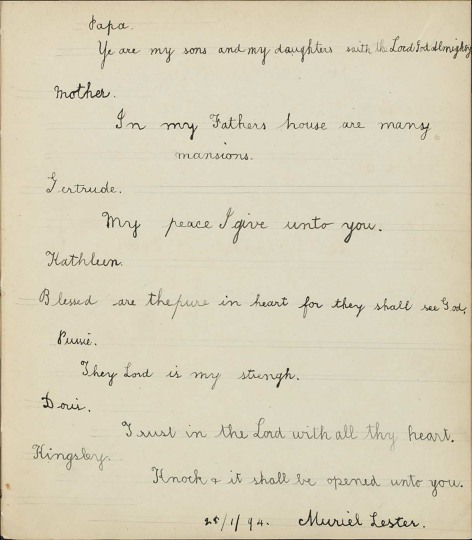 Papa.
Ye are my sons and my daughters saith the Lord God Almighty
Mother.
In my Fathers house are many
mansions.
Gertrude.
My peace I give unto you.
Kathleen.
Blessed are the pure in heart for they shall see God.
They Lord is my strengh.
Doris.
Trust in the Lord with all thy heart.
Kingsley.
Knock & it shall be opened unto you.
25/1/94. Muriel Lester.